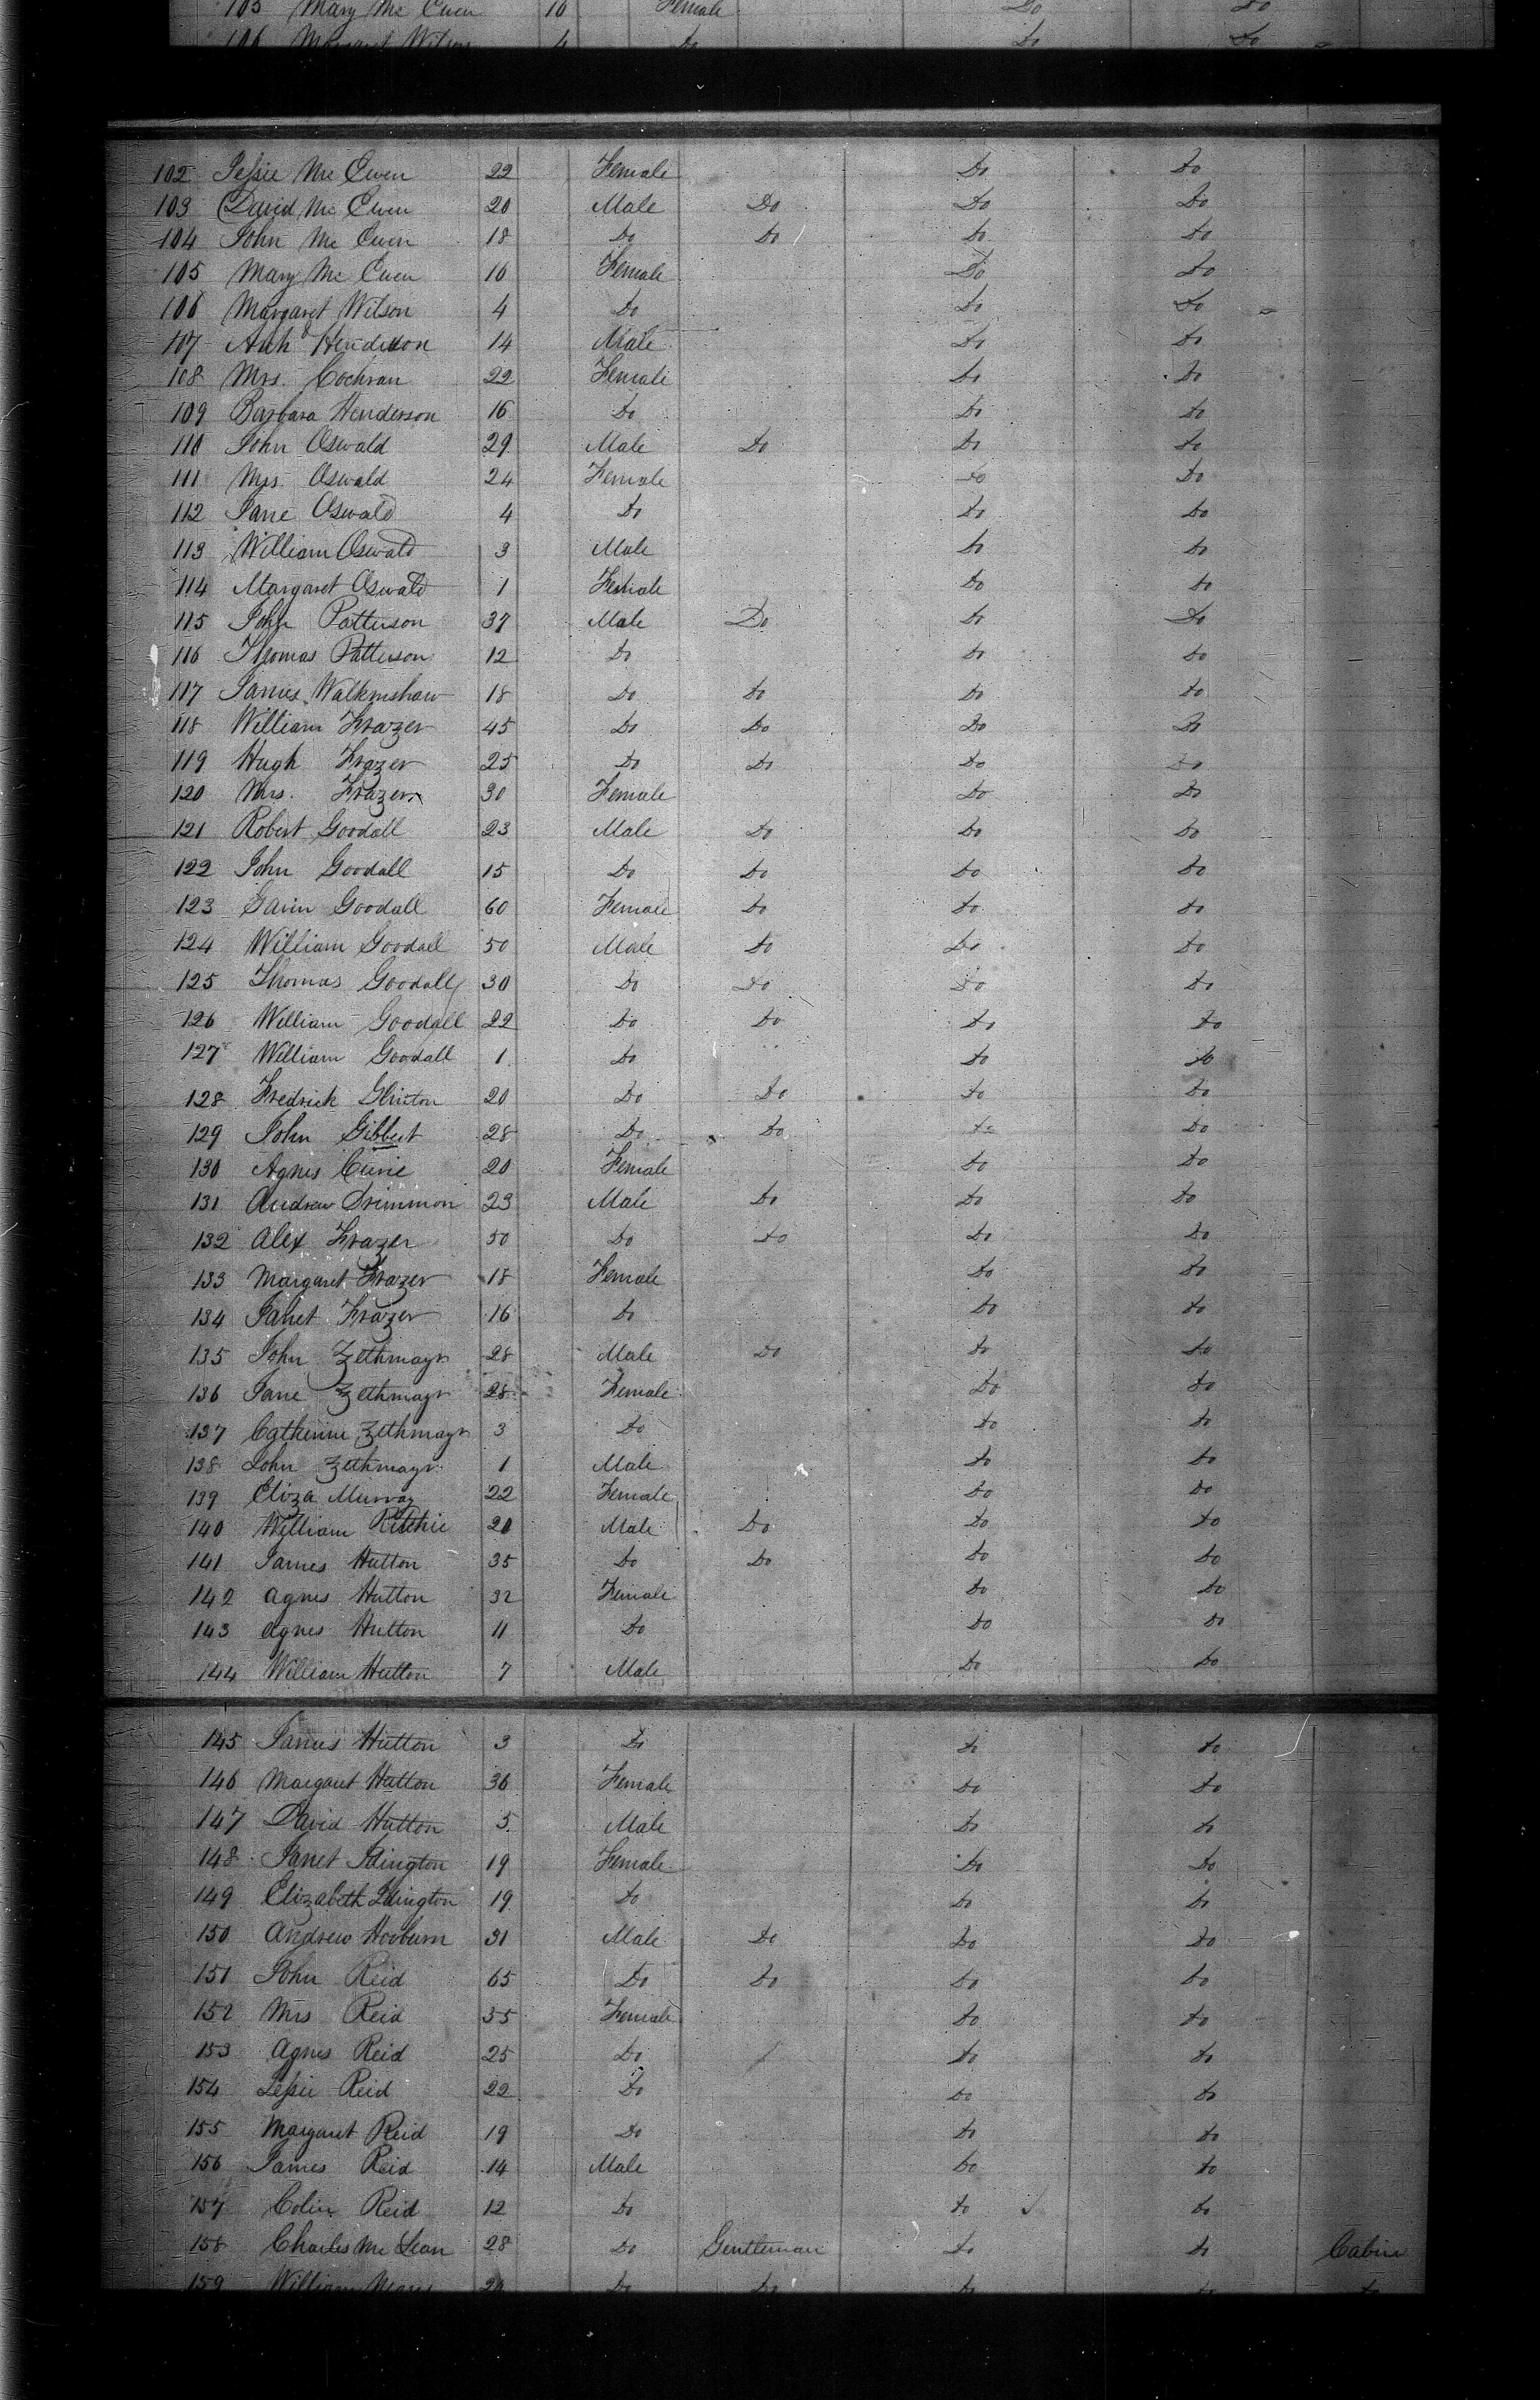 105 Mary Mc Ewen 16 Female Do Do
106 Margaret Wilson 4 Do Do Do
102 Jessie Mc Ewen 22 Female Do Do
103 David Mc Ewen 20 Male Do Do Do
104 John Mc Ewen 18 Do Do Do Do
105 Mary Mc Ewen 16 Female Do Do
106 Margaret Wilson 4 Do Do Do
107 Henderson 14 Male Do Do
108 Mrs. Cochran 22 Female Do Do
109 Barbara Henderson 16 Do Do Do
110 John Oswald 29 Male Do Do Do
111 Mrs. Oswald 24 Female Do Do
112 Jane Oswald 4 Do Do Do
113 William Oswald 3 Male Do Do
114 Margaret Oswald 1 Female Do Do
115 John Patterson 37 Male Do Do Do
116 Thomas Patterson 12 Do Do Do
117 James Walkinshaw 18 Do Do Do Do
118 William Frazer 45 Do Do Do Do
119 Hugh Frazer 25 Do Do Do Do
120 Mrs. Frazer 30 Female Do Do
121 Robert Goodall 23 Male Do Do Do
122 John Goodall 15 Do Do Do Do
123 Goodall 60 Female Do Do Do
124 William Goodall 50 Male Do Do Do
125 Thomas Goodall 30 Do Do Do Do
126 William Goodall 22 Do Do Do Do
127 William Goodall 1 Do Do Do
128 Fredrick Glinton 20 Do Do Do Do
129 John Gibbert 28 Do Do Do Do
130 Agnes Currie 20 Female Do Do
131 Andrew Drimmon 23 Male Do Do Do
132 Alex Frazer 50 Do Do Do Do
133 Margaret Frazer 18 Female Do Do
134 Janet Frazer 16 Do Do Do
135 John Zethmayr 28 Male Do Do Do
136 Jane Zethmayr 28 Female Do Do
137 Catherine Zethmayr 3 Do Do Do
138 John Zethmayr 1 Male Do Do
139 Eliza Murray 22 Female Do Do
140 William Ritchie 20 Male Do Do Do
141 James Hutton 35 Do Do Do Do
142 Agnes Hutton 32 Female Do Do
143 Agnes Hutton 11 Do Do Do
144 William Hutton 7 Male Do Do
145 James Hutton 3 Do Do Do
146 Margaret Hutton 36 Female Do Do
147 David Hutton 5 Male Do Do
148 Janet Idington 19 Female Do Do
149 Elizabeth Idington 19 Do Do Do
150 Andrew Hooburn 31 Male Do Do Do
151 John Reid 65 Do Do Do Do
152 Mrs Reid 55 Female Do Do
153 Agnes Reid 25 Do Do Do
154 Jessie Reid 22 Do Do Do
155 Margaret Reid 19 Do Do Do
156 James Reid 14 Male Do Do
157 Colin Reid 12 Do Do Do
158 Charles Mc Lean 28 Do Gentleman Do Do Cabin
159 William Do Do Do Do Do